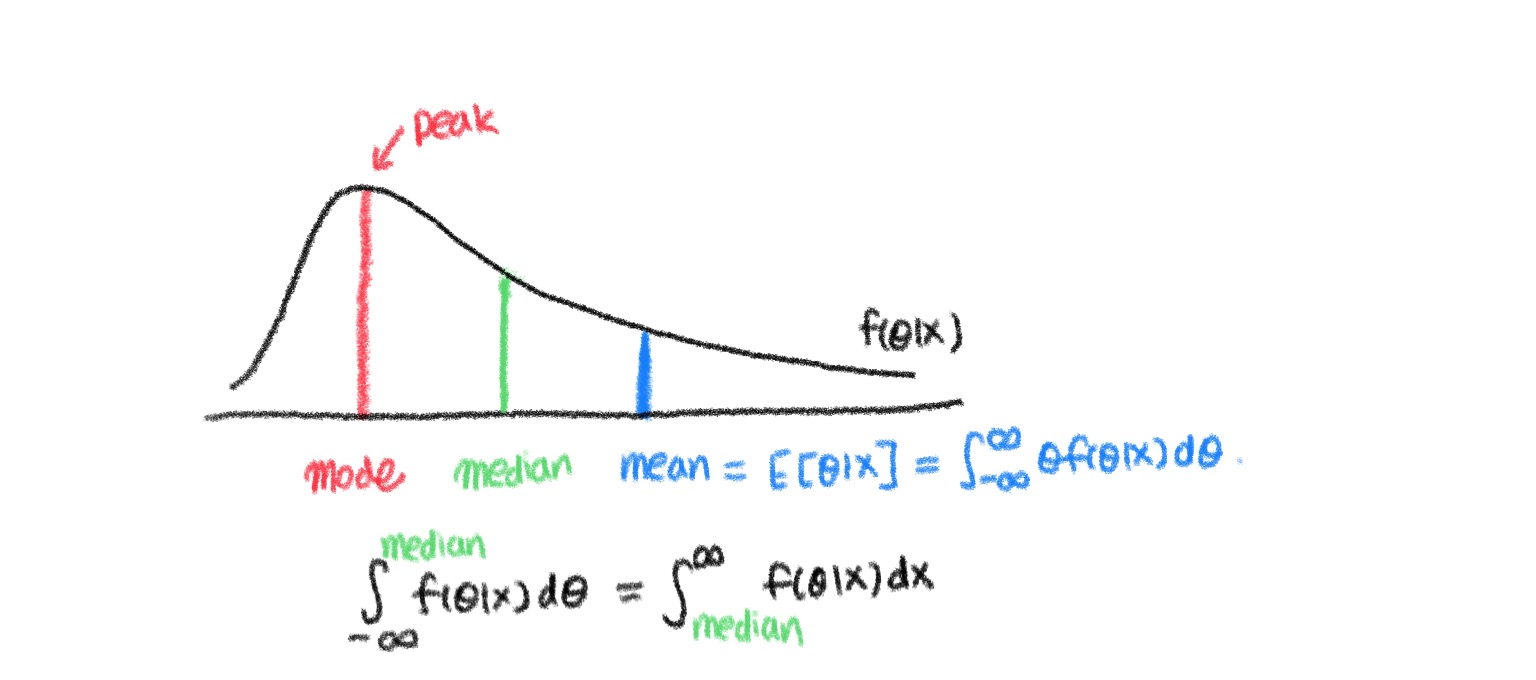 peak
f(θ|x)
mode median mean = E[θ|x] = ∫_{-∞}^{∞} θf(θ|x)dθ.
∫_{-∞}^{median} f(θ|x)dθ = ∫_{median}^{∞} f(θ|x)dx